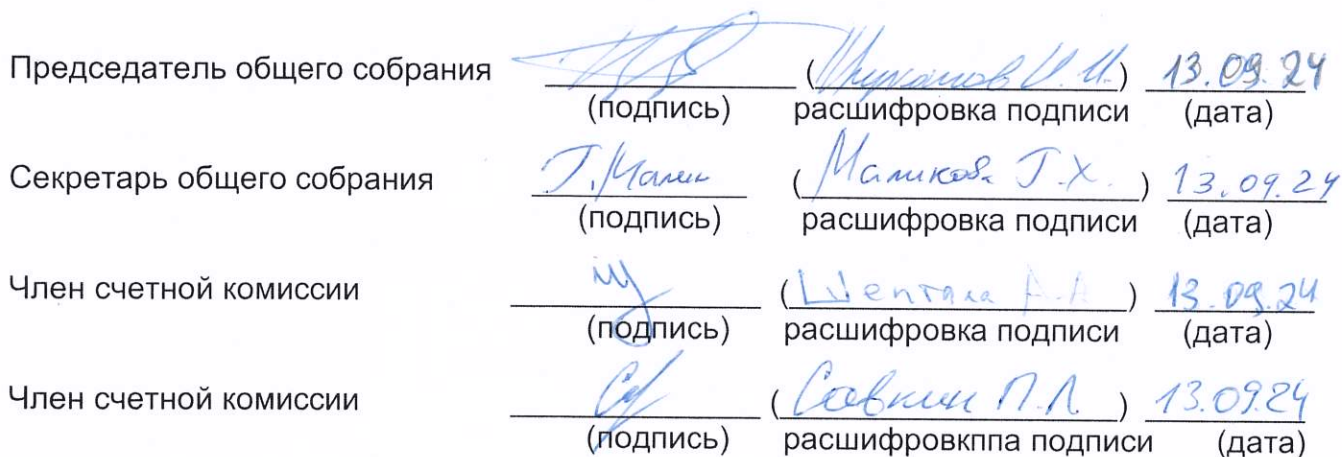 Председатель общего собрания ( И. И.) 13.09.24
(подпись) расшифровка подписи (дата)
Секретарь общего собрания Г. Малик (Маликова Г.Х.) 13.09.24
(подпись) расшифровка подписи (дата)
Член счетной комиссии (Шептала А.А) 13.09.24
(подпись) расшифровка подписи (дата)
Член счетной комиссии (Савкин П.Л.) 13.09.24
(подпись) расшифровкппа подписи (дата)